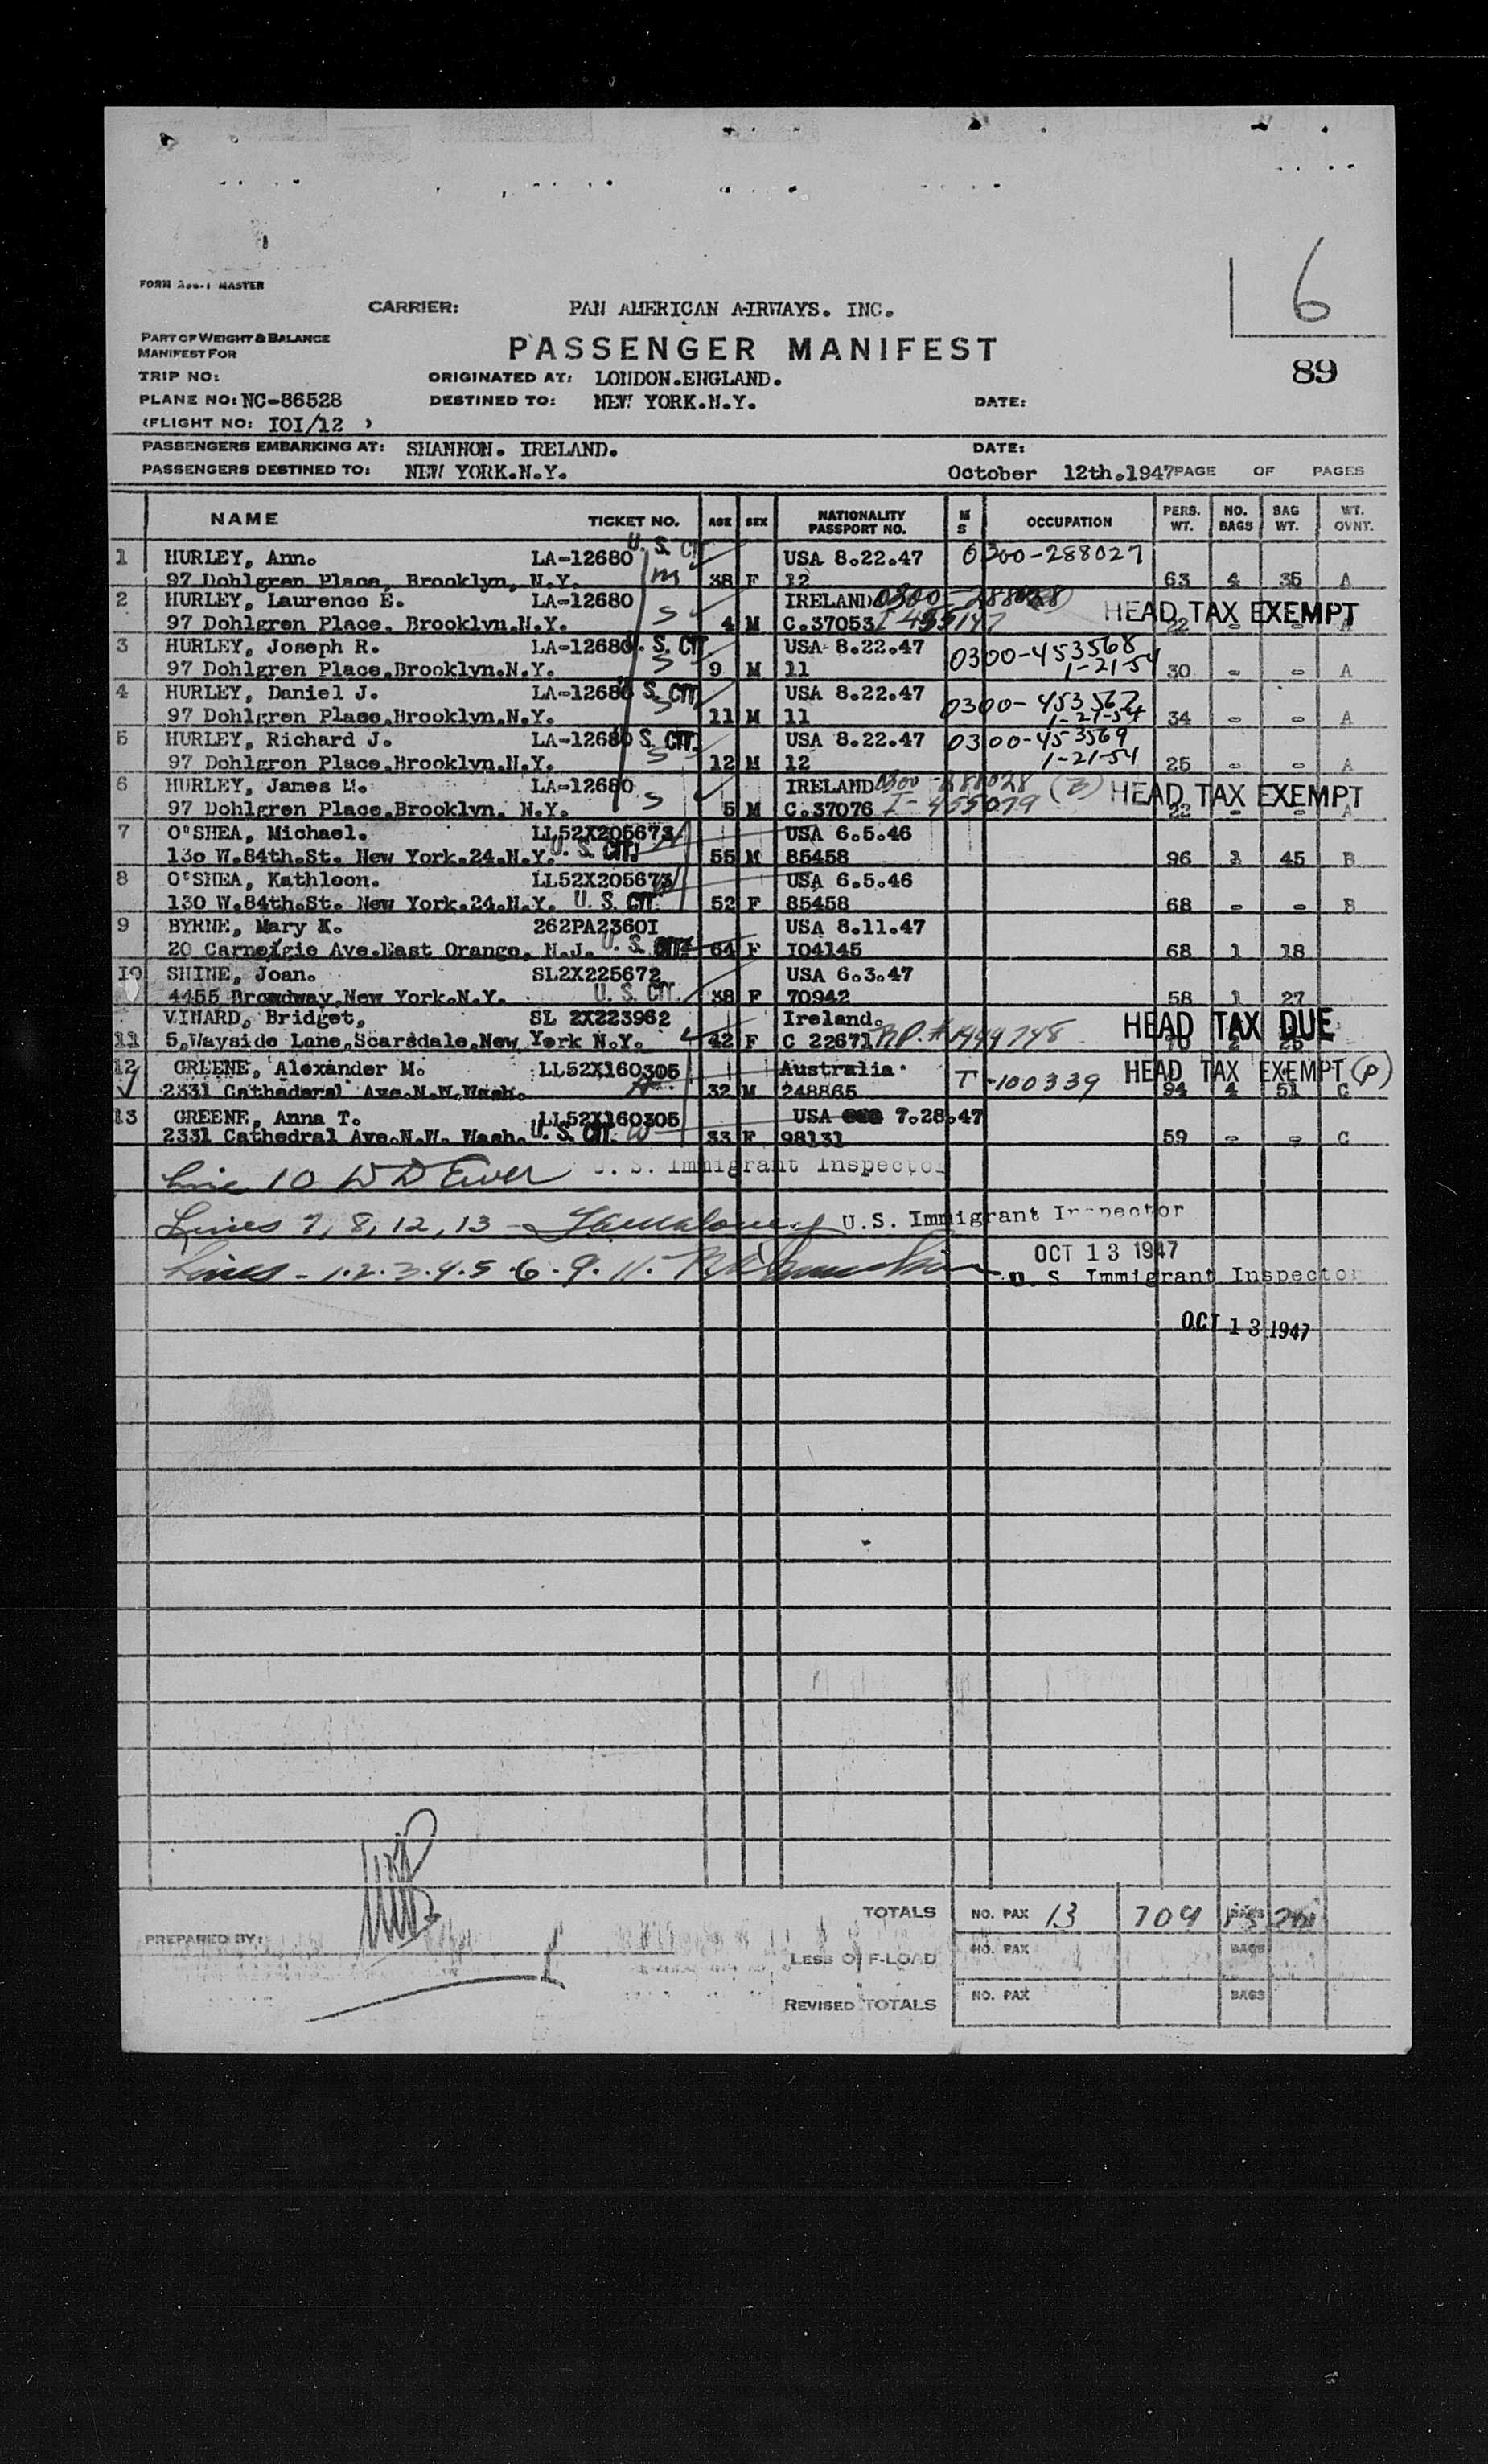 6
89
MASTER
CARRIER: PAN AMERICAN AIRWAYS. INC.
PART OF WEIGHT & BALANCE
MANIFEST FOR
PASSENGER MANIFEST
TRIP NO: ORIGINATED AT: LONDON.ENGLAND.
PLANE NO: NC-86528 DESTINED TO: NEW YORK.N.Y. DATE:
(FLIGHT NO: IOI/12 )
PASSENGERS EMBARKING AT: SHANNON. IRELAND. DATE:
PASSENGERS DESTINED TO: NEW YORK.N.Y. October 12th.1947 PAGE OF PAGES
NAME TICKET NO. AGE SEX NATIONALITY PASSPORT NO. M S OCCUPATION PERS. WT. NO. BAGS BAG WT. WT. OVNY.
1 HURLEY, Ann. LA-12680 U. S. CIT. USA 8.22.47 0300-288027
97 Dohlgren Place, Brooklyn, N.Y. m 38 F 12 63 4 35 A
2 HURLEY, Laurence E. LA-12680 IRELAND HEAD TAX EXEMPT
97 Dohlgren Place. Brooklyn.N.Y. S 4 M C.37053 22 - - A
3 HURLEY, Joseph R. LA-12680 U. S. CIT. USA 8.22.47 0300-453568
97 Dohlgren Place.Brooklyn.N.Y. S 9 M 11 1-21-54 30 - - A
4 HURLEY, Daniel J. LA-12680 S. CIT. USA 8.22.47 0300-453567
97 Dohlgren Place.Brooklyn.N.Y. S 11 M 11 1-21-54 34 - - A
5 HURLEY, Richard J. LA-12680 S. CIT. USA 8.22.47 0300-453569
97 Dohlgren Place.Brooklyn.N.Y. S 12 M 12 1-21-54 25 - - A
6 HURLEY, James M. LA-12680 IRELAND 0300-288028 (3) HEAD TAX EXEMPT
97 Dohlgren Place.Brooklyn. N.Y. S 5 M C.37076 I-455079 22 - - A
7 O'SHEA, Michael. LL52X205673 USA 6.5.46
130 W.84th.St. New York.24.N.Y. U. S. CIT. 55 M 85458 96 1 45 B
8 O'SHEA, Kathleen. LL52X205673 USA 6.5.46
130 W.84th.St. New York.24.N.Y. U. S. CIT. 52 F 85458 68 - - B
9 BYRNE, Mary K. 262PA2360I USA 8.11.47
20 Carnegie Ave.East Orange, N.J. U. S. CIT. 64 F IO4145 68 1 18
10 SHINE, Joan. SL2X225672 USA 6.3.47
4455 Broadway,New York.N.Y. U. S. CIT. 38 F 70942 58 1 27
VINARD, Bridget, SL 2X223962 Ireland. HEAD TAX DUE
11 5,Wayside Lane,Scarsdale,New York N.Y. 42 F C 22671 R.P. # 1449748
12 GREENE, Alexander M. LL52X160305 Australia T-100339 HEAD TAX EXEMPT (P)
2331 Cathederal Ave.N.W.Wash. 32 M 248865 94 4 51 C
13 GREENE, Anna T. LL52X160305 USA 7.28.47
2331 Cathedral Ave.N.W. Wash. U. S. CIT. W 33 F 98131 59 - - C
Line 10 U. S. Immigrant Inspector
Lines 7, 8, 12, 13 - U.S. Immigrant Inspector
OCT 13 1947
Lines - 1.2.3.4.5.6.9.11. U. S Immigrant Inspector
OCT 13 1947
TOTALS NO. PAX 13 709 BAGS
PREPARED BY:
LESS OFF-LOAD NO. PAX BAGS
REVISED TOTALS NO. PAX BAGS